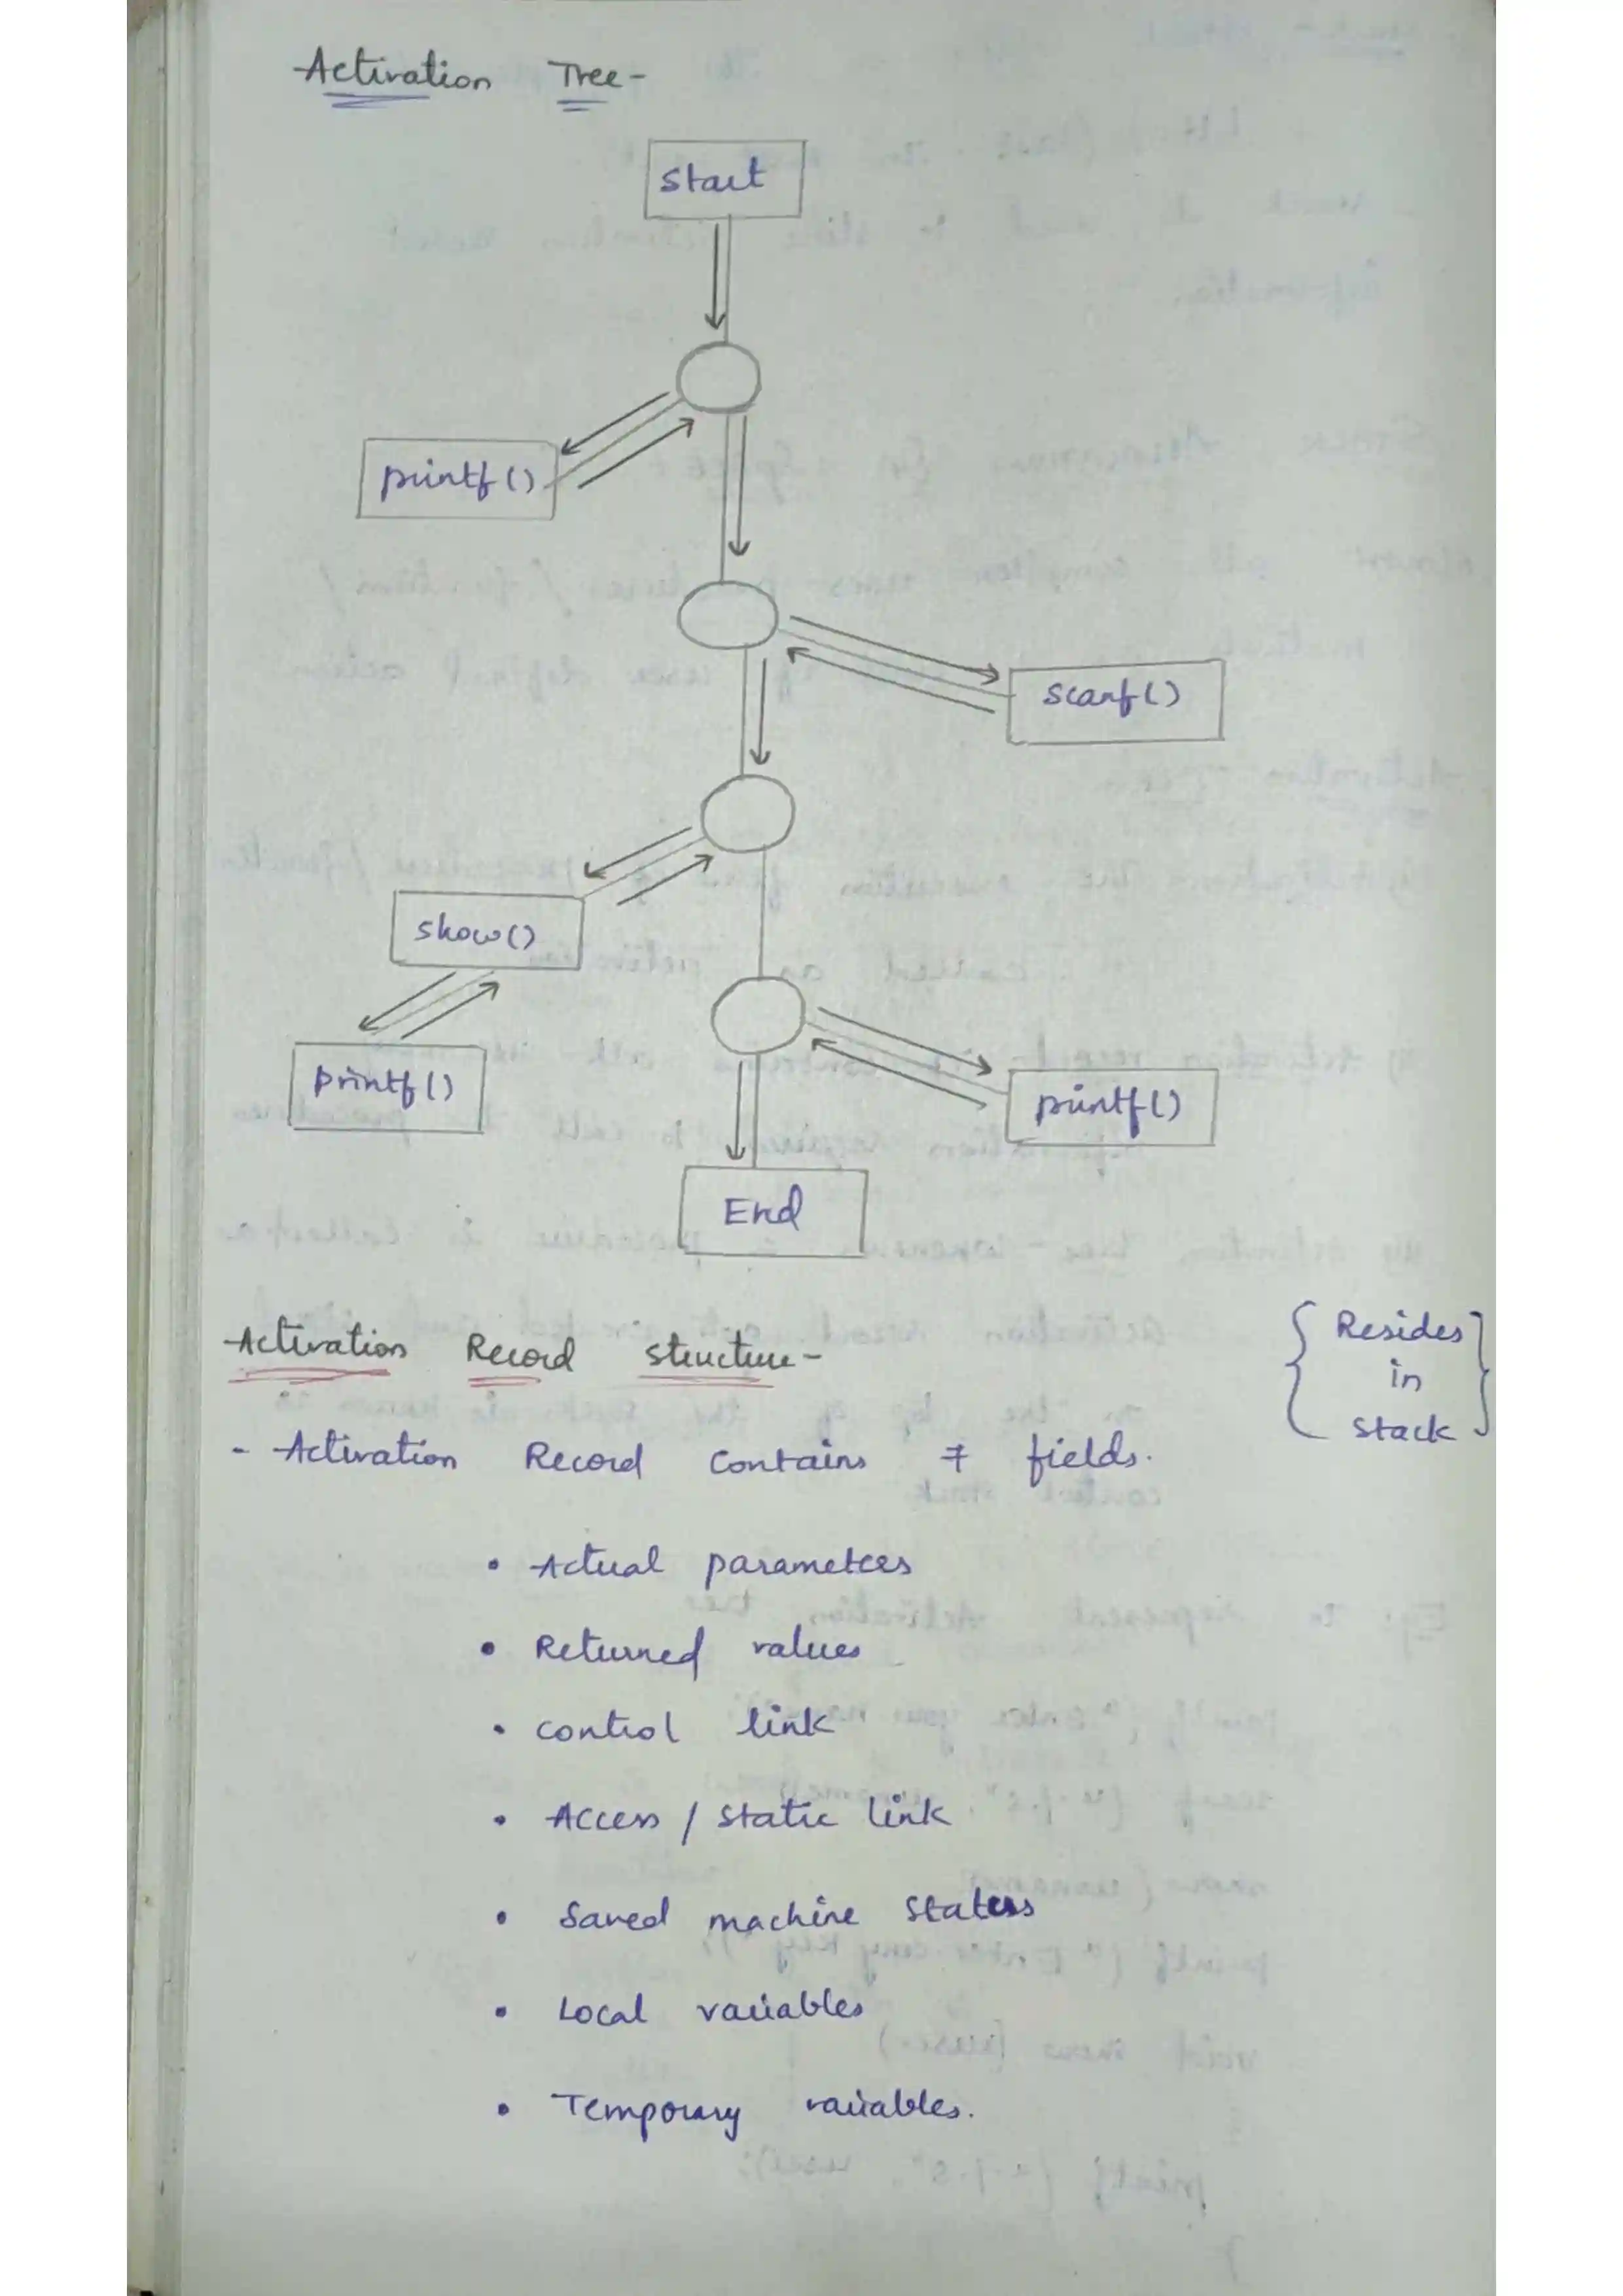 Activation Tree-
Start
printf()
scanf()
show()
printf()
printf()
End
Activation Record structure-
{ Resides in stack }
- Activation Record contains 7 fields.
• Actual parameters
• Returned values
• control link
• Access / static link
• Saved machine states
• Local variables
• Temporary variables.